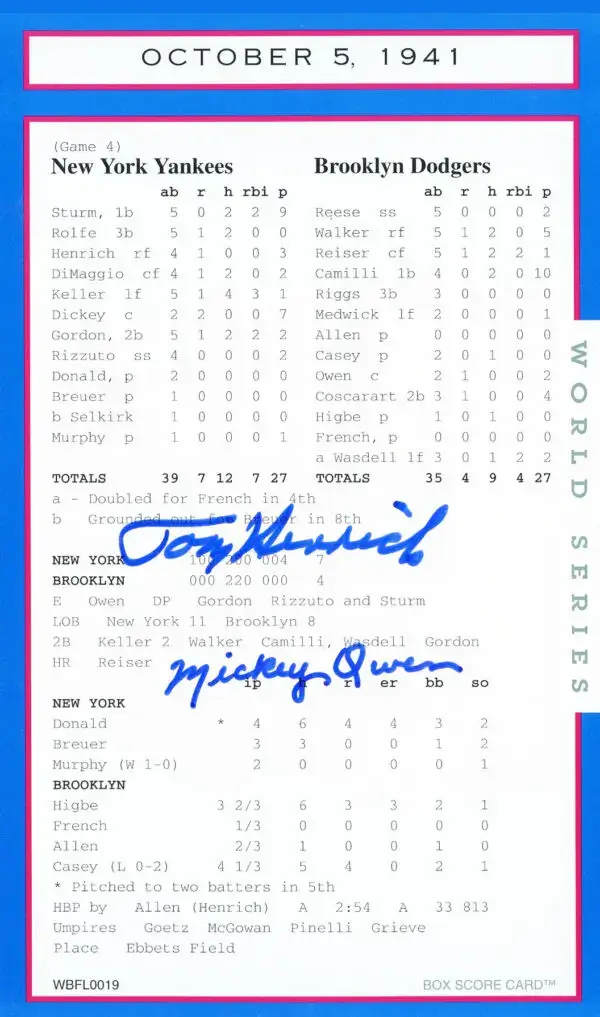 OCTOBER 5, 1941
(Game 4)
New York Yankees
ab r h rbi p
Sturm, 1b 5 0 2 2 9
Rolfe 3b 5 1 2 0 0
Henrich rf 4 1 0 0 3
DiMaggio cf 4 1 2 0 2
Keller lf 5 1 4 3 1
Dickey c 2 2 0 0 7
Gordon, 2b 5 1 2 2 2
Rizzuto ss 4 0 0 0 2
Donald, p 2 0 0 0 0
Breuer p 1 0 0 0 0
b Selkirk 1 0 0 0 0
Murphy p 1 0 0 0 1
TOTALS 39 7 12 7 27
Brooklyn Dodgers
ab r h rbi p
Reese ss 5 0 0 0 2
Walker rf 5 1 2 0 5
Reiser cf 5 1 2 2 1
Camilli 1b 4 0 2 0 10
Riggs 3b 3 0 0 0 0
Medwick lf 2 0 0 0 1
Allen p 0 0 0 0 0
Casey p 2 0 1 0 0
Owen c 2 1 0 0 2
Coscarart 2b 3 1 0 0 4
Higbe p 1 0 1 0 0
French, p 0 0 0 0 0
a Wasdell lf 3 0 1 2 2
TOTALS 35 4 9 4 27
a - Doubled for French in 4th
b Grounded out for Breuer in 8th
Tom Henrich
NEW YORK 100 200 004 7
BROOKLYN 000 220 000 4
E Owen DP Gordon Rizzuto and Sturm
LOB New York 11 Brooklyn 8
2B Keller 2 Walker Camilli, Wasdell Gordon
HR Reiser
Mickey Owen
ip h r er bb so
NEW YORK
Donald * 4 6 4 4 3 2
Breuer 3 3 0 0 1 2
Murphy (W 1-0) 2 0 0 0 0 1
BROOKLYN
Higbe 3 2/3 6 3 3 2 1
French 1/3 0 0 0 0 0
Allen 2/3 1 0 0 1 0
Casey (L 0-2) 4 1/3 5 4 0 2 1
* Pitched to two batters in 5th
HBP by Allen (Henrich) A 2:54 A 33 813
Umpires Goetz McGowan Pinelli Grieve
Place Ebbets Field
WBFL0019
BOX SCORE CARD™
WORLD SERIES